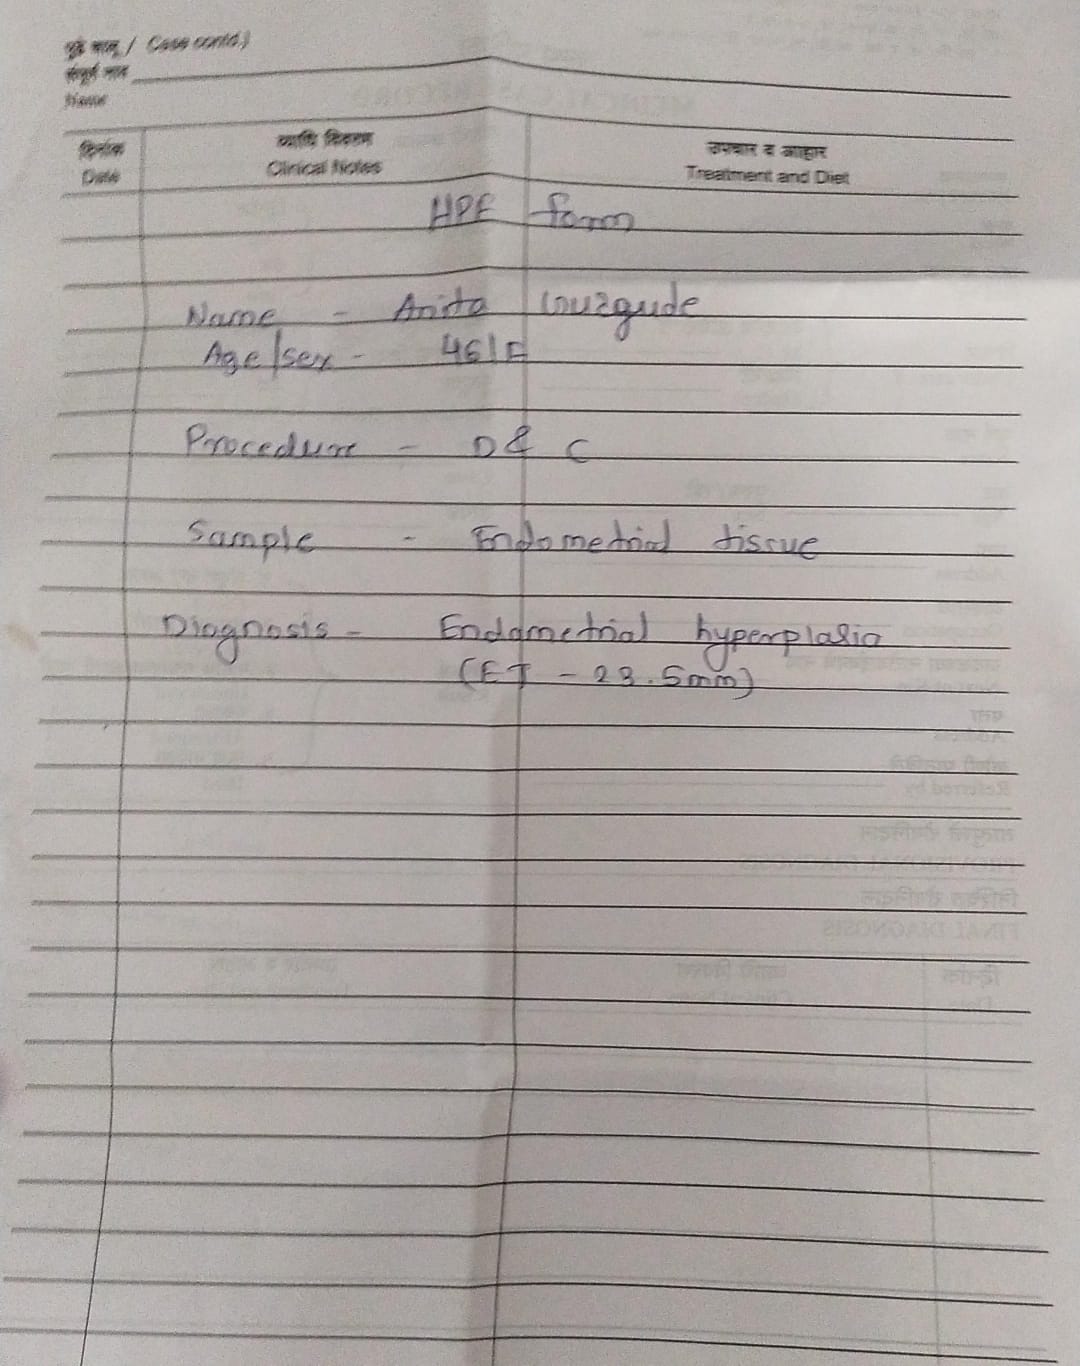 पुढे चालू / Case contd.)
संपूर्ण नाव
Name
दिनांक
Date
व्याधि विवरण
Clinical Notes
उपचार व आहार
Treatment and Diet
HPE form
Name - Anita
Age/sex - 46/F
Procedure - D& C
Sample - Endometrial tissue
Diagnosis - Endometrial hyperplasia
(ET - 23.5mm)